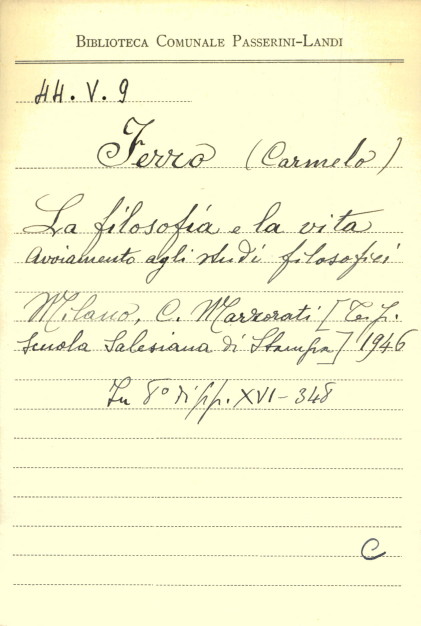 BIBLIOTECA COMUNALE PASSERINI-LANDI
44. V. 9
Ferro (Carmelo)
La filosofia e la vita
Avviamento agli studi filosofici
Milano, C. Marzorati [Tip.
Scuola Salesiana di Stampa] 1946
In 8° di pp. XVI-348
C